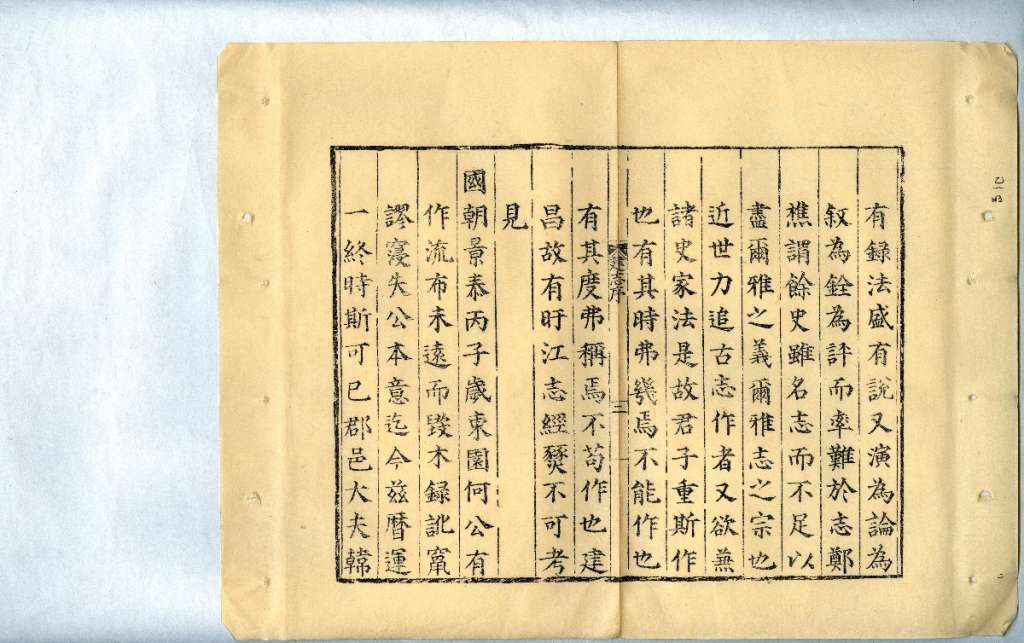 有録法盛有說又演為論為
叙為銓為評而率難於志鄭
樵謂餘史雖名志而不足以
盡爾雅之義爾雅志之宗也
近世力追古志作者又欲兼
諸史家法是故君子重斯作
也有其時弗幾焉不能作也
建志序
三
有其度弗稱焉不苟作也建
昌故有旴江志經燹不可考
見
國朝景泰丙子歲東園何公有
作流布未遠而毀木録訛竄
謬寖失公本意迄今玆曆運
一終時斯可已郡邑大夫韓